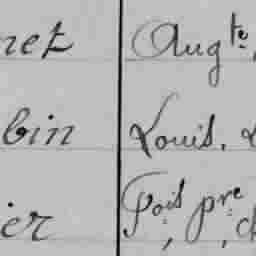 net Augte,
bin Louis,
ier Fois pre, ch